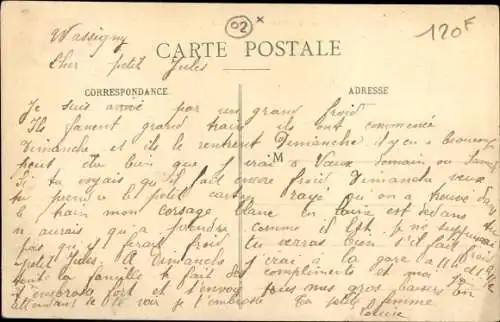 02 *
120F
Wassigny
CARTE POSTALE
Cher petit Jules
CORRESPONDANCE
ADRESSE
Je suis arrivé par un grand froid
Ils fanent grand train ils ont commencé
Dimanche et ils le rentrent Dimanche il y en a beaucoup
peut du bien que j'irai a Vaux demain ou
M
Si tu voyais qu'il fait encore froid Dimanche veux
tu prendre le petit carton rayé qu'on a trouvé dans
le train mon corsage blanc en est dedans
n aurais qu'a prendre comme il Est. je ne
pas qu'il ferait froid tu verras bien s'il fait
petit Jules. A Dimanche j'irai a la gare
toute la famille te fait des compliments et moi je
t'embrasse fort et t'envoy tous mes gros baisers en
attendant de te voir je t'embrasse Ta petite femme